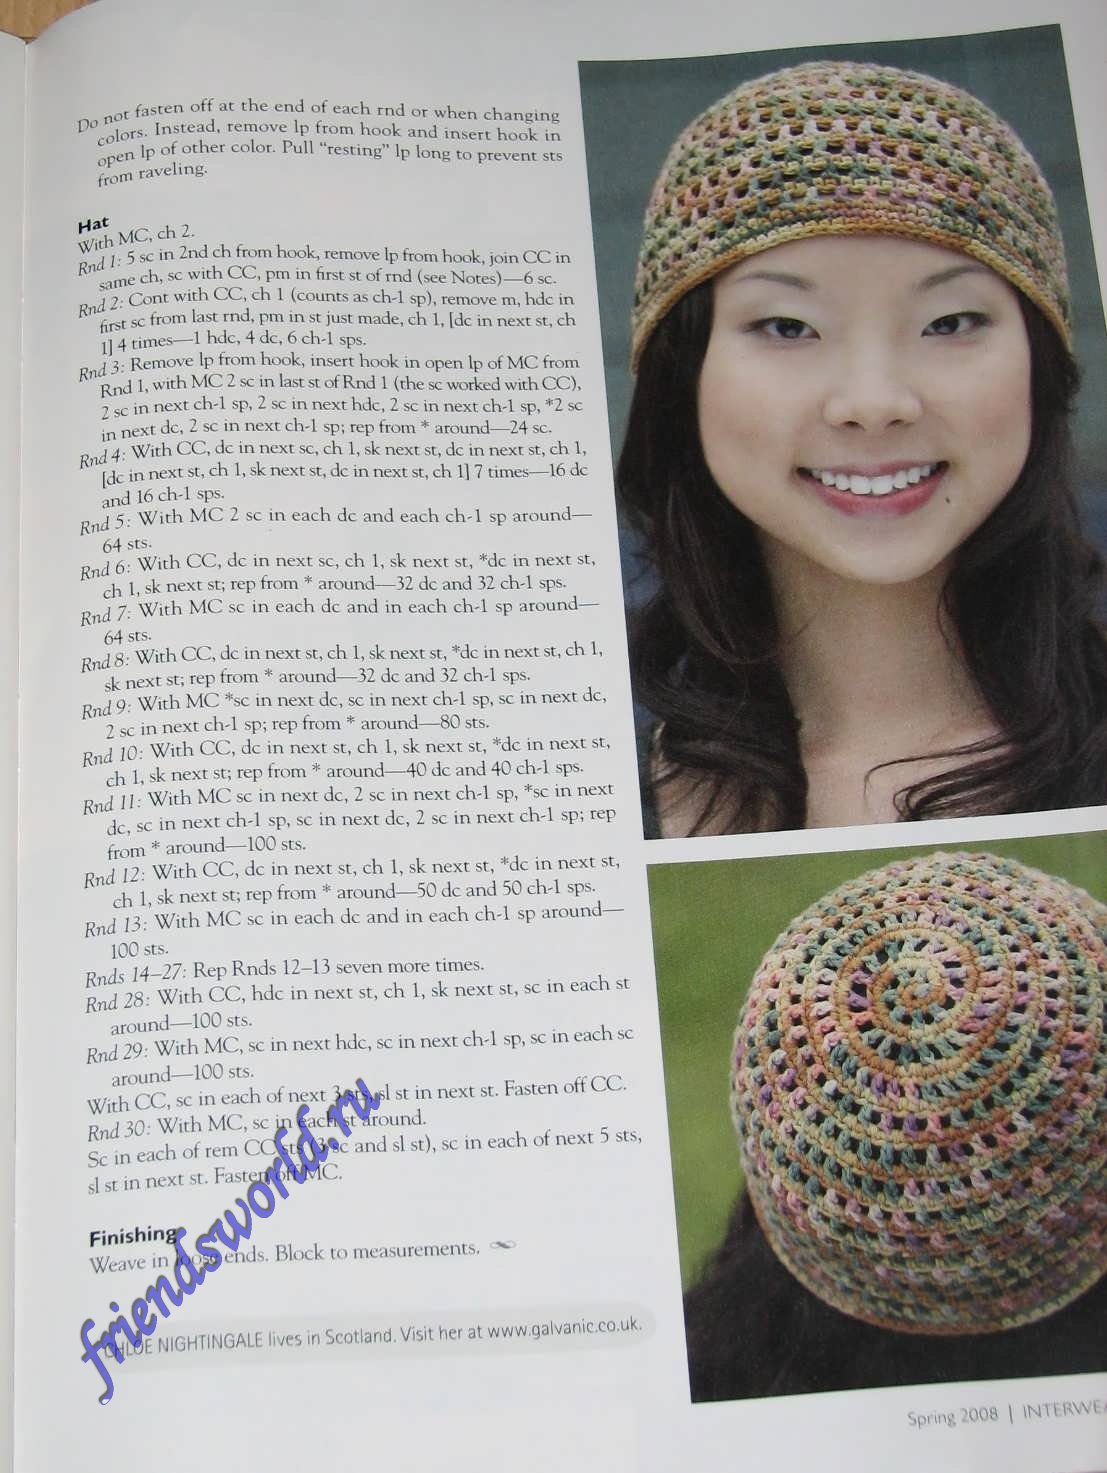 Do not fasten off at the end of each rnd or when changing
colors. Instead, remove lp from hook and insert hook in
open lp of other color. Pull “resting” lp long to prevent sts
from raveling.
Hat
With MC, ch 2.
Rnd 1: 5 sc in 2nd ch from hook, remove lp from hook, join CC in
same ch, sc with CC, pm in first st of rnd (see Notes)—6 sc.
Rnd 2: Cont with CC, ch 1 (counts as ch-1 sp), remove m, hdc in
first sc from last rnd, pm in st just made, ch 1, [dc in next st, ch
1] 4 times—1 hdc, 4 dc, 6 ch-1 sps.
Rnd 3: Remove lp from hook, insert hook in open lp of MC from
Rnd 1, with MC 2 sc in last st of Rnd 1 (the sc worked with CC),
2 sc in next ch-1 sp, 2 sc in next hdc, 2 sc in next ch-1 sp, *2 sc
in next dc, 2 sc in next ch-1 sp; rep from * around—24 sc.
Rnd 4: With CC, dc in next sc, ch 1, sk next st, dc in next st, ch 1,
[dc in next st, ch 1, sk next st, dc in next st, ch 1] 7 times—16 dc
and 16 ch-1 sps.
Rnd 5: With MC 2 sc in each dc and each ch-1 sp around—
64 sts.
Rnd 6: With CC, dc in next sc, ch 1, sk next st, *dc in next st,
ch 1, sk next st; rep from * around—32 dc and 32 ch-1 sps.
Rnd 7: With MC sc in each dc and in each ch-1 sp around—
64 sts.
Rnd 8: With CC, dc in next st, ch 1, sk next st, *dc in next st, ch 1,
sk next st; rep from * around—32 dc and 32 ch-1 sps.
Rnd 9: With MC *sc in next dc, sc in next ch-1 sp, sc in next dc,
2 sc in next ch-1 sp; rep from * around—80 sts.
Rnd 10: With CC, dc in next st, ch 1, sk next st, *dc in next st,
ch 1, sk next st; rep from * around—40 dc and 40 ch-1 sps.
Rnd 11: With MC sc in next dc, 2 sc in next ch-1 sp, *sc in next
dc, sc in next ch-1 sp, sc in next dc, 2 sc in next ch-1 sp; rep
from * around—100 sts.
Rnd 12: With CC, dc in next st, ch 1, sk next st, *dc in next st,
ch 1, sk next st; rep from * around—50 dc and 50 ch-1 sps.
Rnd 13: With MC sc in each dc and in each ch-1 sp around—
100 sts.
Rnds 14–27: Rep Rnds 12–13 seven more times.
Rnd 28: With CC, hdc in next st, ch 1, sk next st, sc in each st
around—100 sts.
Rnd 29: With MC, sc in next hdc, sc in next ch-1 sp, sc in each sc
around—100 sts.
With CC, sc in each of next 3 sts, sl st in next st. Fasten off CC.
Rnd 30: With MC, sc in each st around.
Sc in each of rem CC sts (3 sc and sl st), sc in each of next 5 sts,
sl st in next st. Fasten off MC.
Finishing
Weave in loose ends. Block to measurements.
CHLOE NIGHTINGALE lives in Scotland. Visit her at www.galvanic.co.uk.
friendsworld.ru
Spring 2008 | INTERWEA